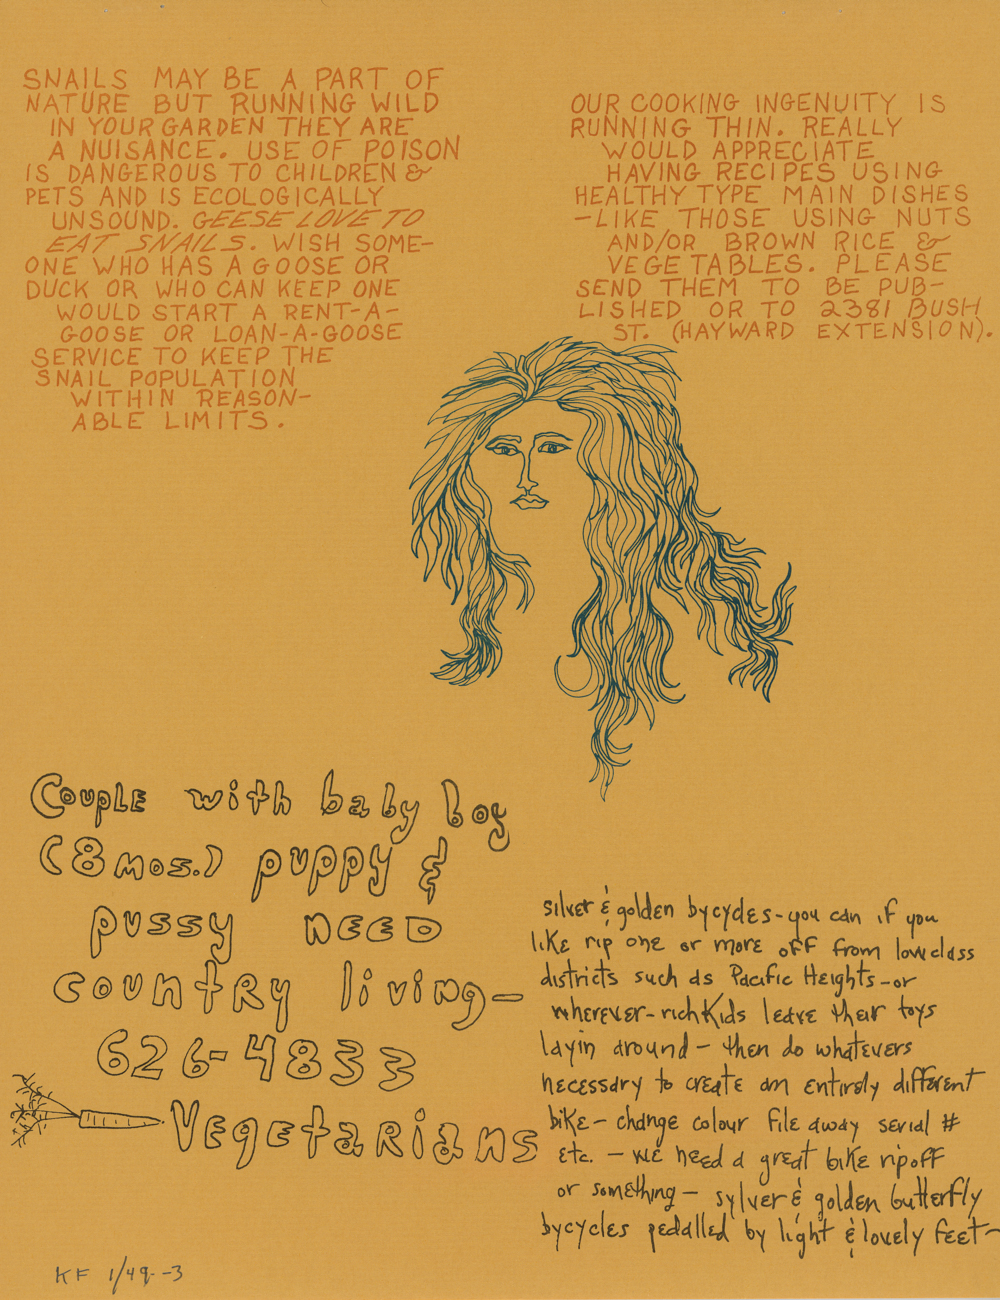 SNAILS MAY BE A PART OF
NATURE BUT RUNNING WILD
IN YOUR GARDEN THEY ARE
A NUISANCE. USE OF POISON
IS DANGEROUS TO CHILDREN &
PETS AND IS ECOLOGICALLY
UNSOUND. GEESE LOVE TO
EAT SNAILS. WISH SOME-
ONE WHO HAS A GOOSE OR
DUCK OR WHO CAN KEEP ONE
WOULD START A RENT-A-
GOOSE OR LOAN-A-GOOSE
SERVICE TO KEEP THE
SNAIL POPULATION
WITHIN REASON-
ABLE LIMITS.
OUR COOKING INGENUITY IS
RUNNING THIN. REALLY
WOULD APPRECIATE
HAVING RECIPES USING
HEALTHY TYPE MAIN DISHES
-LIKE THOSE USING NUTS
AND/OR BROWN RICE &
VEGETABLES. PLEASE
SEND THEM TO BE PUB-
LISHED OR TO 2381 BUSH
ST. (HAYWARD EXTENSION).
COUPLE with baby boy
(8 mos.) puppy &
pussy NEED
country living-
626-4833
VEgEtaRians
silver & golden bycycles-you can if you
like rip one or more off from loweclass
districts such as Pacific Heights-or
wherever-rich kids leave their toys
layin around - then do whatevers
necessary to create an entirely different
bike- change colour file away serial #
etc. - we need a great bike ripoff
or something- sylver & golden butterfly
bycycles pedalled by light & lovely feet-
KF 1/49--3